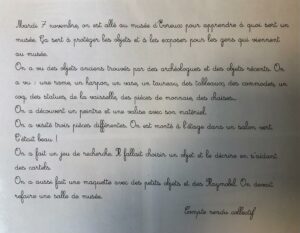 Mardi 7 novembre, on est allé au musée d'Evreux pour apprendre à quoi sert un
musée. Ça sert à protéger les objets et à les exposer pour les gens qui viennent
au musée.
On a vu des objets anciens trouvés par des archéologues et des objets récents. On
a vu : une rame, un harpon, un vase, un taureau, des tableaux, des commodes, un
coq, des statues, de la vaisselle, des pièces de monnaie, des chaises...
On a découvert un peintre et une valise avec son matériel.
On a visité trois pièces différentes. On est monté à l'étage dans un salon vert.
C'était beau !
On a fait un jeu de recherche. Il fallait choisir un objet et le décrire en s'aidant
des cartels.
On a aussi fait une maquette avec des petits objets et des Playmobil. On devait
refaire une salle de musée.
Compte rendu collectif